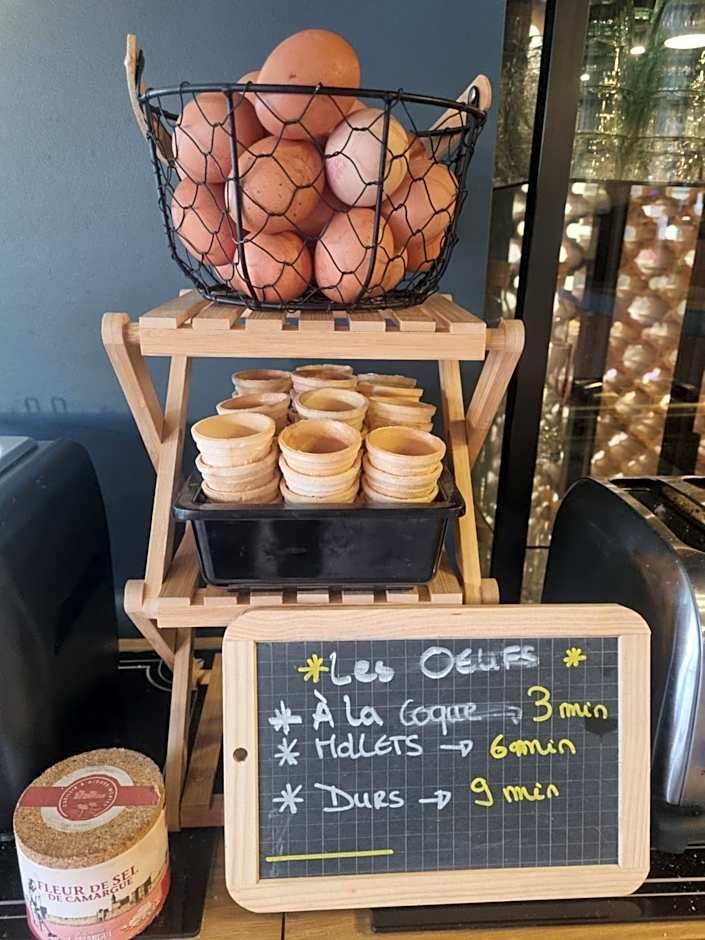 Les OEUFS
À la Coque → 3 min
MOLLETS → 6 min
DURS → 9 min
FLEUR DE SEL
DE CAMARGUE